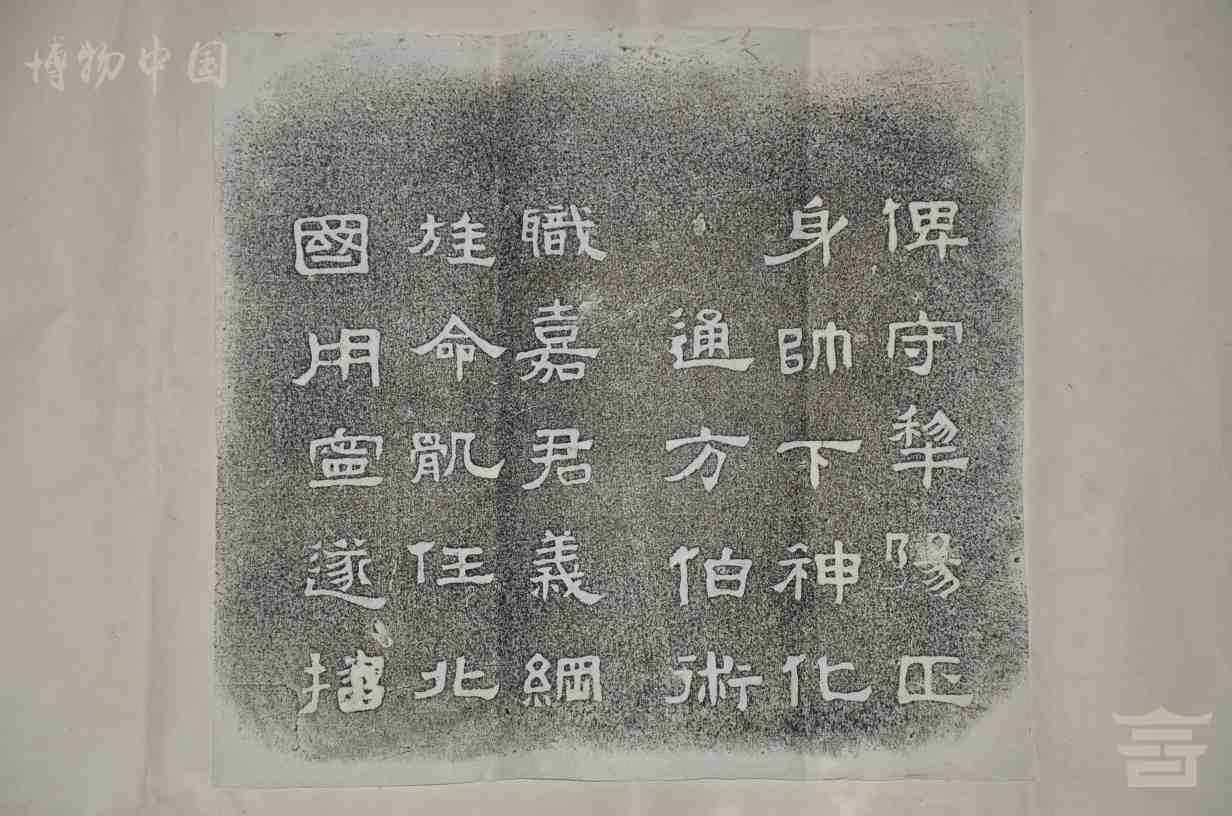 博物中国
俾守犂陽正
身帥下神化
通方伯術
職嘉君義綱
旌命任北
國用寧遂播